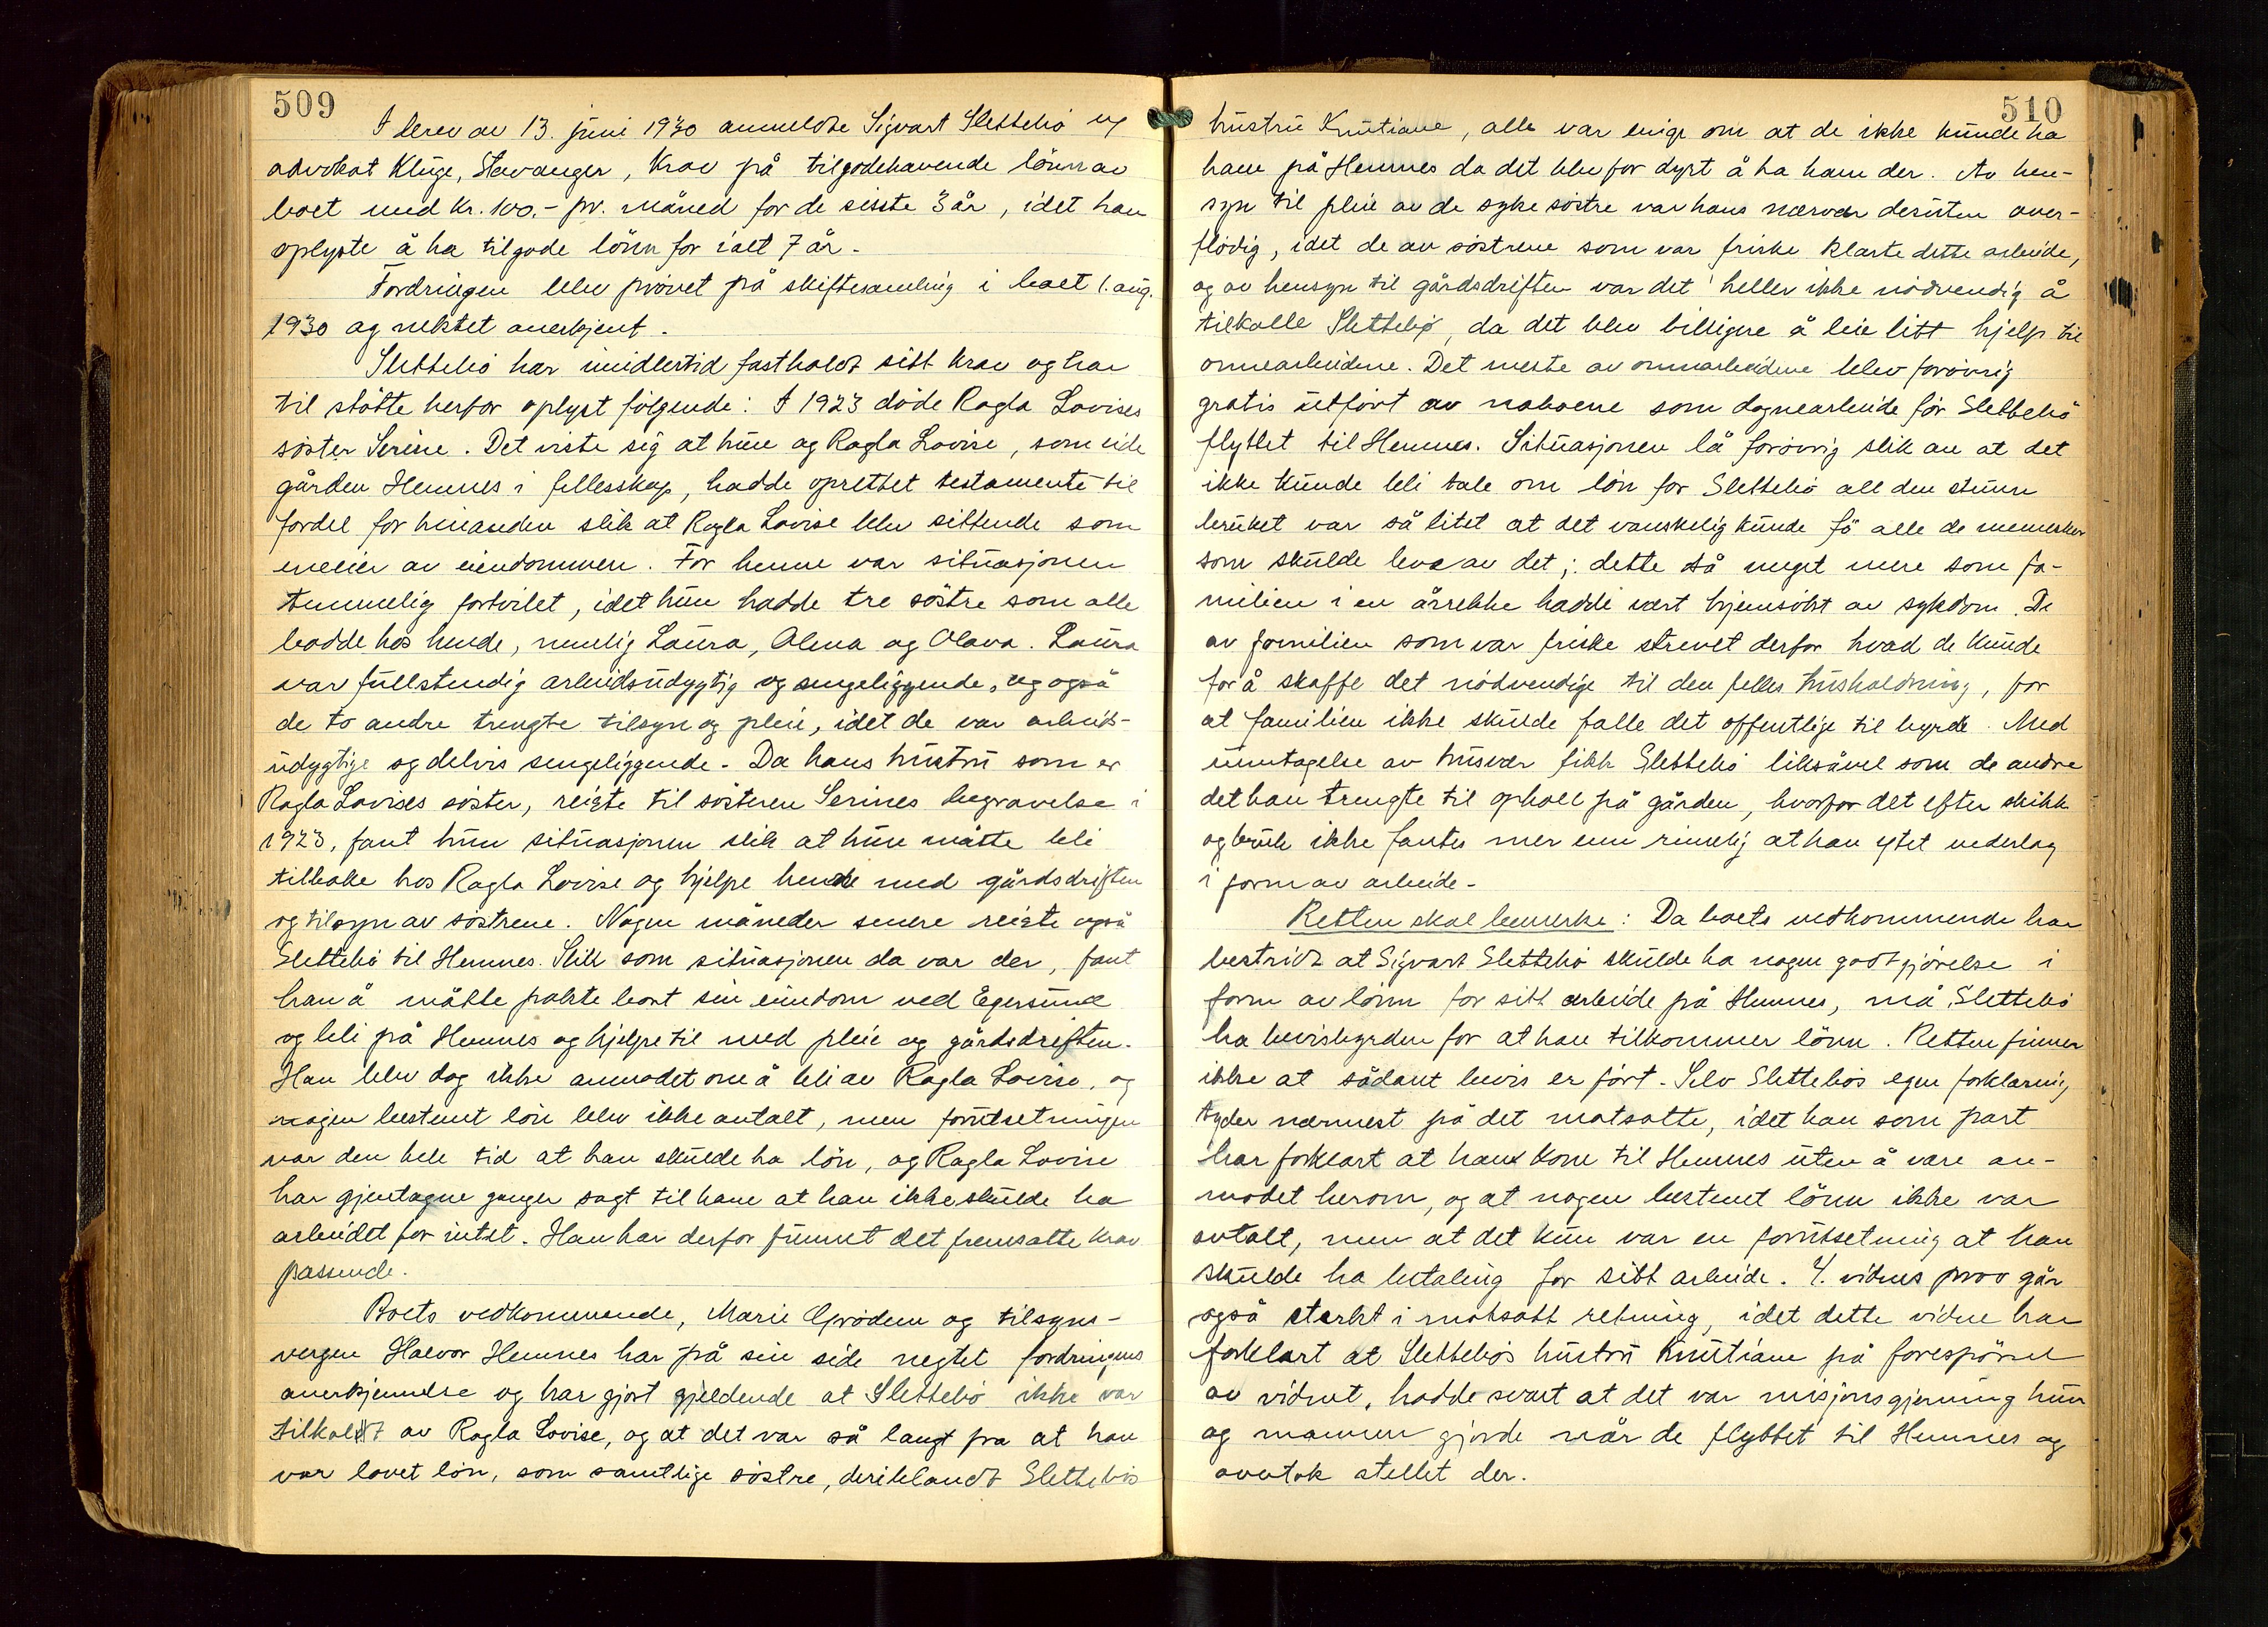 509
I brev av 13. juni 1930 anmeldte Sigvart Slettebö ved
advokat Kluge, Stavanger, krav på tilgodehavende lönn av
boet med kr. 100.- pr. måned for de sisste 3 år, idet han
oplyste å ha tilgode lönn for ialt 7 år.
Fordringen blev prövet på skiftesamling i boet 1. aug.
1930 og nektet anerkjent.
Slettebö har imidlertid fastholdt sitt krav og har
til stötte herfor oplyst fölgende: I 1923 döde Ragla Lovises
söster Serine. Det viste sig at hun og Ragla Lovise, som eide
gården Hemnes i fellesskap, hadde oprettet testamente til
fordel for hinanden slik at Ragla Lovise blev sittende som
eneeier av eiendommen. For henne var situasjonen
temmelig fortvilet, idet hun hadde tre söstre som alle
bodde hos hende, nemlig Laura, Alena og Olava. Laura
var fullstendig arbeidsudygtig og sengeliggende, og også
de to andre trengte tilsyn og pleie, idet de var arbeids-
udygtige og delvis sengeliggende. Da hans hustru som er
Ragla Lovises söster, reiste til sösteren Serines begravelse i
1923, fant hun situasjonen slik at hun måtte bli
tilbake hos Ragla Lovise og hjelpe hende med gårdsdriften
og tilsyn av söstrene. Nogen måneder senere reiste også
Slettebö til Hemnes. Slik som situasjonen da var der, fant
han å måtte pakte bort sin eiendom ved Egersund
og bli på Hemnes og hjelpe til med pleie og gårdsdriften.
Han blev dog ikke anmodet om å bli av Ragla Lovise, og
nogen bestemt lön blev ikke avtalt, men forutsetningen
var den hele tid at han skulde ha lön, og Ragla Lovise
har gjentagne ganger sagt til ham at han ikke skulde ha
arbeidet for intet. Han har derfor funnet det fremsatte krav
passende.
Boets vedkommende, Marie Grödem og tilsyns-
vergen Halvor Hemnes har på sin side negtet fordringens
anerkjennelse og har gjort gjeldende at Slettebö ikke var
tilkaldt av Ragla Lovise, og at det var så langt fra at han
var lovet lön, som samtlige söstre, deriblandt Slettebös
510
hustru Knutiane, alle var enige om at de ikke kunde ha
ham på Hemnes da det blev for dyrt å ha ham der. Av hen-
syn til pleie av de syke söstre var hans nærvær desuten over-
flödig, idet de av söstrene som var friske klarte dette arbeide,
og av hensyn til gårdsdriften var det heller ikke nödvendig å
tilkalle Slettebö, da det blev billigere å leie litt hjelp til
onnearbeidene. Det meste av onnarbeidene blev forövrig
gratis utfört av naboene som dognearbeide för Slettebö
flyttet til Hemnes. Situasjonen lå forövrig slik an at det
ikke kunde bli tale om lön for Slettebö all den stunn
bruket var så litet at det vanskelig kunde fö alle de mennesker
som skulde leve av det; dette så meget mere som fa-
milien i en årrekke hadde vært hjemsökt av sykdom. De
av familien som var friske strevet derfor hvad de kunde
for å skaffe det nödvendige til den felles husholdning, for
at familien ikke skulde falle det offentlige til byrde. Med
unntagelse av husvær fikk Slettebö liksåvel som de andre
det han trengte til ophold på gården, hvorfor det efter skikk
og bruk ikke fantes mer enn rimelig at han ytet vederlag
i form av arbeide.
Retten skal bemerke: Da boets vedkommende har
bestridt at Sigvart Slettebö skulde ha nogen godtgjörelse i
form av lönn for sitt arbeide på Hemnes, må Slettebö
ha bevisbyrden for at han tilkommer lönn. Retten finner
ikke at sådant bevis er fört. Selv Slettebös egen forklaring
tyder nærmest på det motsatte, idet han som part
har forklart at han kom til Hemnes uten å være an-
modet herom, og at nogen bestemt lönn ikke var
avtalt, men at det kun var en forutsetning at han
skulde ha betaling for sitt arbeide. 4. vidnes prov går
også sterkt i motsatt retning, idet dette vidne har
forklart at Slettebös hustru Knutiane på forespörsel
av vidnet, hadde svart at det var misjonsgjerning hun
og mannen gjorde når de flyttet til Hemnes og
overtok stellet der.